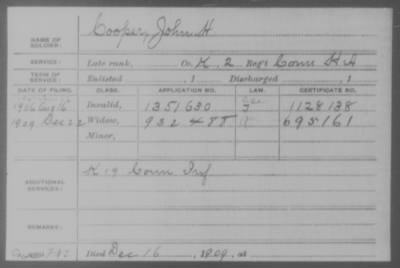 NAME OF SOLDIER: Cooper, John H
SERVICE: Late rank, Co. K, 2 Reg't Conn H A
TERM OF SERVICE: Enlisted , 1 Discharged , 1
DATE OF FILING. CLASS. APPLICATION NO. LAW. CERTIFICATE NO.
1906 Aug 16 Invalid, 1351630 1128138
1909 Dec 22 Widow, 932488 695161
Minor,
ADDITIONAL SERVICES: K 19 Conn Inf
REMARKS:
Died Dec 16, 1909, at